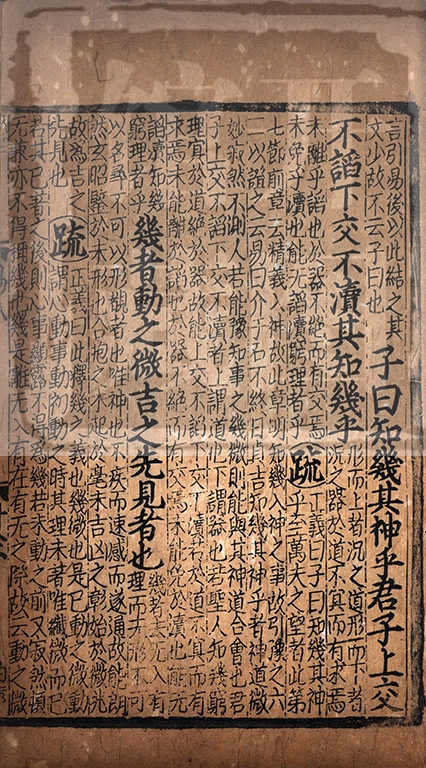 言引易後以此結之其
文少故不云子曰也
子曰知幾其神乎君子上交
不諂下交不瀆其知幾乎
形而上者況之道形而下者
況之器於道不冥而有求焉
未離乎諂也於器不絕而有交焉
未免乎瀆也能无諂瀆窮理者乎
疏
正義曰子曰知幾其神
乎至萬夫之望者此第
七節前章云精義入神故此章明知幾入神之事故引豫之六
二以證之云易曰介于石不終日貞吉知幾其神乎者神道微
妙寂然不測人若能豫知事之幾微則能與其神道合會也君
子上交不諂下交不瀆者上謂道也下謂器也若聖人知幾窮
理冥於道絕於器故能上交不諂下交不瀆若於道不冥而有
求焉未能離於諂也於器不絕而有交焉未能免於瀆也能无
諂瀆知幾
窮理者乎
幾者動之微吉之先見者也
幾者去无入有
理而未形不可
以名尋不可以形覩者也唯神也不疾而速感而遂通故能朗
然玄昭鑒於未形也合抱之木起於毫末吉凶之彰始於微兆
故為吉之
先見也
疏
正義曰此釋幾之義也幾微也是已動之微動
謂心動事動初動之時其理未著唯纖微而已
若其已著之後則心事顯露不得為幾若未動之前又寂然頓
无兼亦不得稱幾也幾是離无入有在有无之際故云動之微